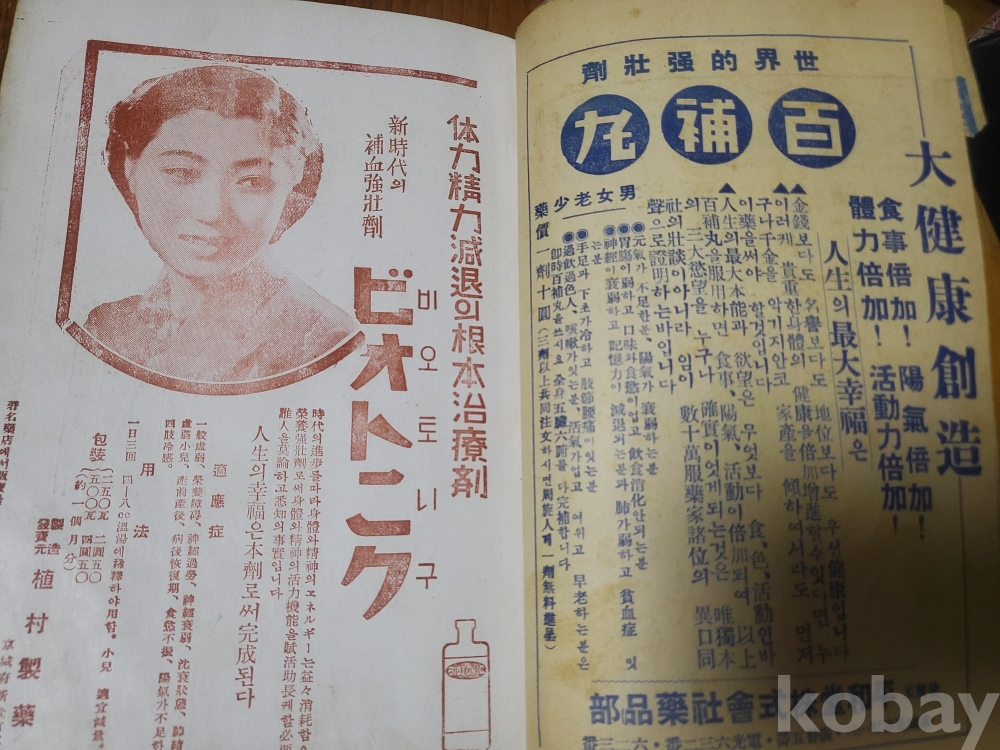 世界的强壯劑
百補丸
大健康創造
食事倍加! 陽氣倍加!
體力倍加! 活動力倍加!
人生의 最大幸福은
金錢보다도 名譽보다도 地位보다도 우선健康입니다
이러케 貴重한身體의 健康을倍加增進할수잇다면 누
구나千金을 악기지안코 家產을 傾하여서라도 먼저
이藥을써야 할것입니다
人生의最大本能과 欲望은 무엇보다 食、色、活動인바
百補丸을服用하면 食事、陽氣、活動이倍加되여 以上
의 三大欲望을 누구나 確實이엇게되는것은 唯獨本
社의壯談이아니라 임이 數十萬服藥家諸位의 異口同
聲으로證明하는바입니다
男女老少
●元氣가 不足한분、陽氣가 衰弱하는분
●胃腸이弱하고 口味와食慾이업고 飲食消化안되는분
●神經이衰弱하고 記憶力이 減退되는분과 肺가弱하고 貧血症 잇
는분
●手足과 下초가冷하고 肢節腰痛이잇는분
●過飲過色人、咳嗽가잇는분、活氣가업고 여위고 早老하는분은
卽時百補丸을쓰시요 全身五臟六腑를 다完補합니다
藥價 一劑十圓(三劑以上共同注文하시면周旋人에 一劑無料進呈)
式會社藥品部
体力精力減退의根本治療剤
ビオトニク
비오토니구
新時代의
補血強壯劑
時代의進步를따라身體와精神의エネルギー는益々消耗함
榮養强壯劑로써身體와精神의活力機能을賦活助長케할必要
誰人을莫論하고悉知의事實입니다
人生의幸福은本劑로써完成된다
適應症
一般虛弱、榮養障碍、神經過勞、神經衰弱、沈衰狀態、肺結
虛弱小兒、産前産後、病後恢復期、食慾不振、陽氣가不足한
四肢冷感。
用法
一日三回 四-八cc溫湯에稀釋하야用함。小兒 適宜減量。
包裝
二五〇瓦 二圓五〇
五〇〇瓦 四圓五〇
(約一個月分)
BIOTONIC
製造
發賣元
植村製藥
京城府
著名藥店에서販賣
kobay